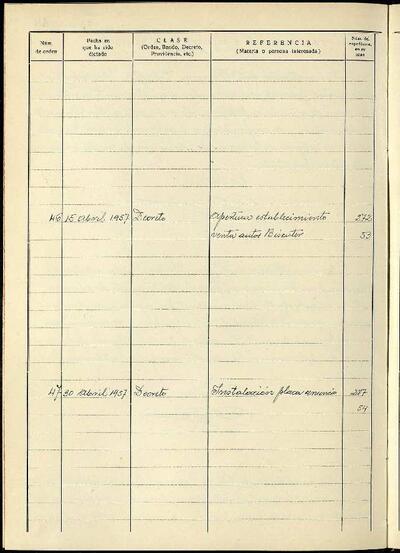 Núm. de orden
Fecha en que ha sido dictado
CLASE
(Orden, Bando, Decreto, Providencia, etc.)
REFERENCIA
(Materia o persona interesada)
Núm. del expediente, en su caso
46 15 Abril 1957 Decreto apertura establecimiento 272
venta autos Biscuter 53
47 30 Abril 1957 Decreto Instalación placa anuncio 287
54